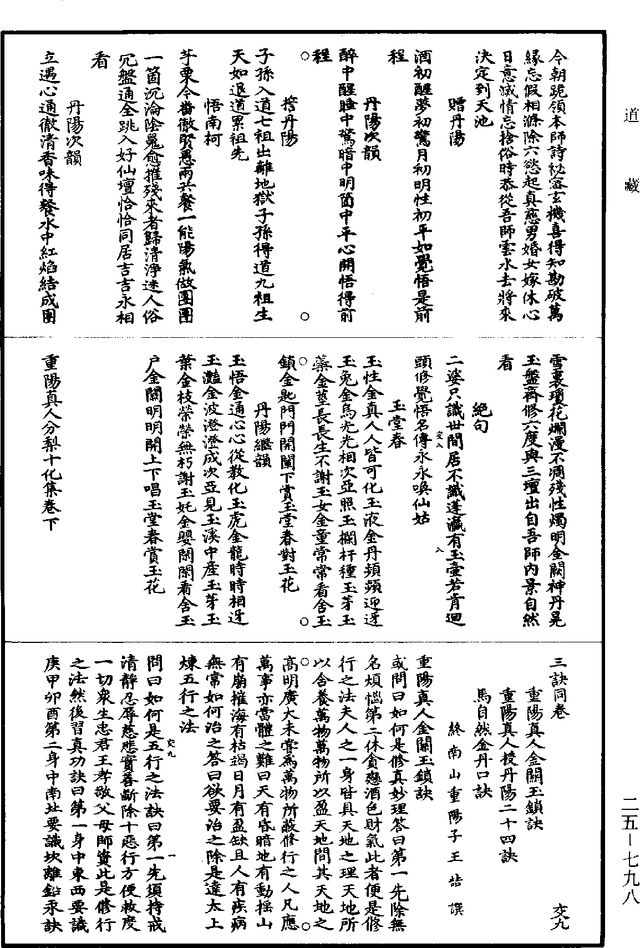 道藏
今朝跪領本師詩秘密玄機喜得知勘破萬
緣忘假相滌除六慾起真慈男婚女嫁休心
日意滅情忘捨俗時恭從吾師雲水去將來
決定到天池
贈丹陽
酒初醒夢初驚月初明性初平如覺悟是前
程
丹陽次韻
醉中醒睡中驚暗中明箇中平心開悟得前
程
○擔丹陽○
子孫入道七祖出離地獄子孫得道九祖生
天如退道累祖先
悟南柯
芋栗今番散賢愚兩共餐一能陽氣做團團
一箇沉淪陰鬼愈摧殘來者歸清淨迷人俗
冗盤通全跳入好仙壇恰恰同居吉吉永相
看
丹陽次韻
立遇心通徹清香味得餐水中紅焰結成團
雪裏瓊花爛漫不凋殘性燭明金闕神丹晃
玉盤齊修六度與三壇出自吾師內景自然
看
絕句
二婆只識世間居不識蓬瀛有玉壺若肯迴
頭修覺悟名傳永永喚仙姑
玉堂春
玉性金真人人皆可化玉液金丹頻頻迎迓
玉兔金烏光光相次亞照玉欄杆種玉芽玉
藥金莖長長生不謝玉女金童常常看舍玉
鎖金匙門門開闡下賞玉堂春對玉花
丹陽繼韻
玉悟金通心心從教化玉虎金龍時時相迓
玉豔金波澄澄成次亞見玉溪中產玉芽玉
葉金枝榮榮無朽謝玉姹金嬰閑閑看舍玉
戶金關明明開上下唱玉堂春賞玉花
重陽真人分梨十化集卷下
三訣同卷 交九
重陽真人金關玉鎖訣
重陽真人授丹陽二十四訣
馬自然金丹口訣
終南山重陽子王嚞譔
重陽真人金關玉鎖訣
或問曰如何是修真妙理答曰第一先除無
名煩惱第二休貪戀酒色財氣此者便是修
行之法夫人之一身皆具天地之理天地所
以含養萬物萬物所以盈天地間其天地之
高明廣大未嘗為萬物所蔽修行之人凡應
萬事亦當體之難曰天有昏暗地有動搖山
有崩摧海有枯竭日月有盈缺且人有疾病
無常如何治之答曰欲要治之除是達太上
煉五行之法
問曰如何是五行之法訣曰第一先須持戒
清靜忍辱慈悲實善斷除十惡行方便救度
一切眾生忠君王孝敬父母師資此是修行
之法然後習真功訣曰第一身中東西要識
庚甲卯酉第二身中南北要識坎離鉛汞訣
二五—七九八